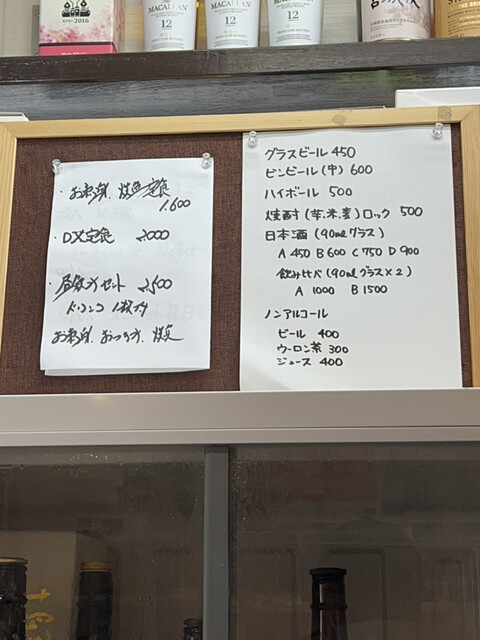 2016
MACALLAN
12
MACALLAN
12
MACALLAN
12
・お刺身、焼魚定食
1.600
・DX定食 2000
・昼飲みセット 2500
ドリンク1杯付
お刺身、おつまみ、焼魚
グラスビール 450
ビンビール(中) 600
ハイボール 500
焼酎(芋、米、麦)ロック 500
日本酒(90mlグラス)
A 450 B 600 C 750 D 900
飲み比べ(90mlグラス×2)
A 1000 B 1500
ノンアルコール
ビール 400
ウーロン茶 300
ジュース 400